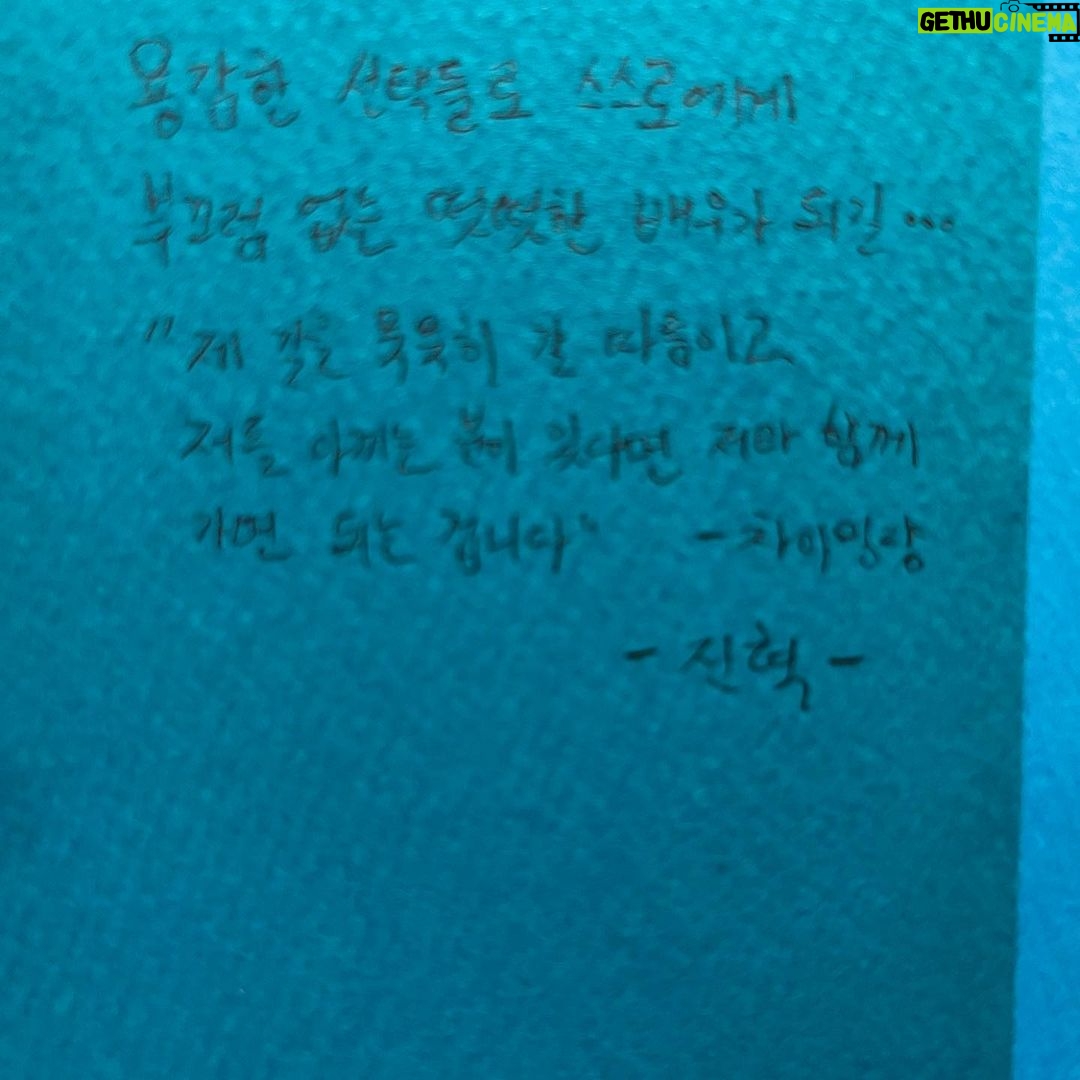 GETHUCINEMA
용감한 선택들로 스스로에게
부끄럼 없는 떳떳한 배우가 되길...
"제 길을 묵묵히 갈 따름이고
저를 아끼는 분이 있다면 저와 함께
가면 되는 겁니다" - 차이밍량
- 진혁 -